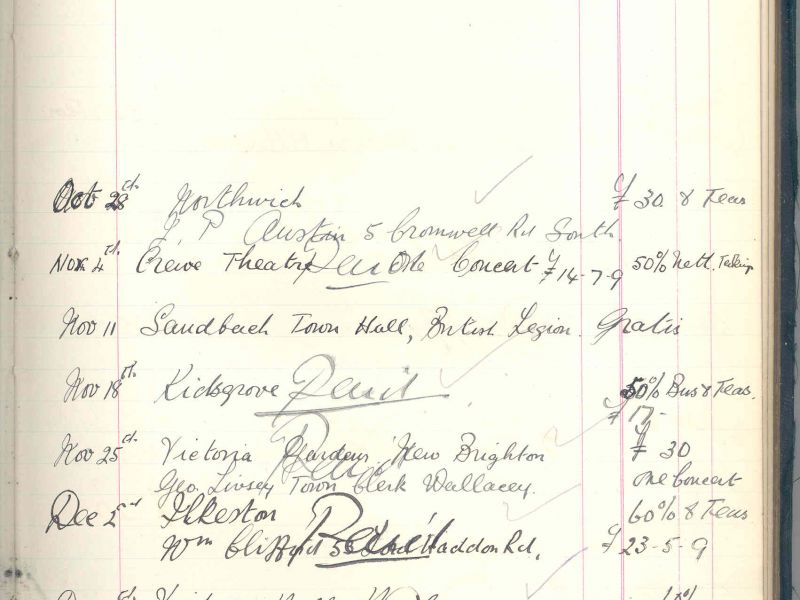 Oct 28 Northwich £30 & Teas
J. P. Austin 5 Cromwell Rd South.
Nov 4 Crewe Theatre One Concert £14-7-9 50% nett. Takings
Paid
Nov 11 Sandbach Town Hall, British Legion. Gratis
Nov 18 Kidsgrove Paid 50% Bus & Teas.
£17-
Nov 25 Victoria Gardens, New Brighton £30
Paid
Geo. Livsey Town Clerk Wallacey. One Concert
Dec 2nd Ilkeston 60% & Teas
Paid
Wm Haddon Rd. £23-5-9